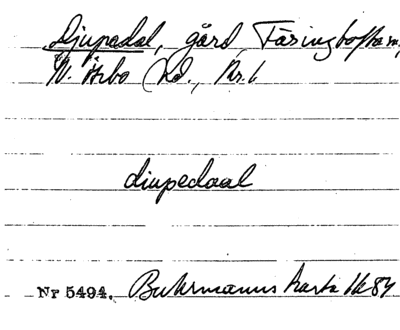 Djupedal, gård, Färingboftam,
N. Åsbo hd., Nr.6
djupedaal
Nr 5494. Buhrmanns karta 1684